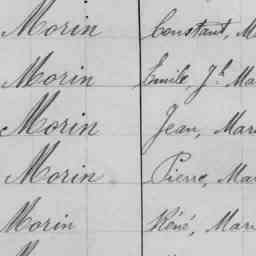 Morin Constant, M
Morin Emile, Jh Ma
Morin Jean, Mari
Morin Pierre, Mar
Morin Réné, Mari